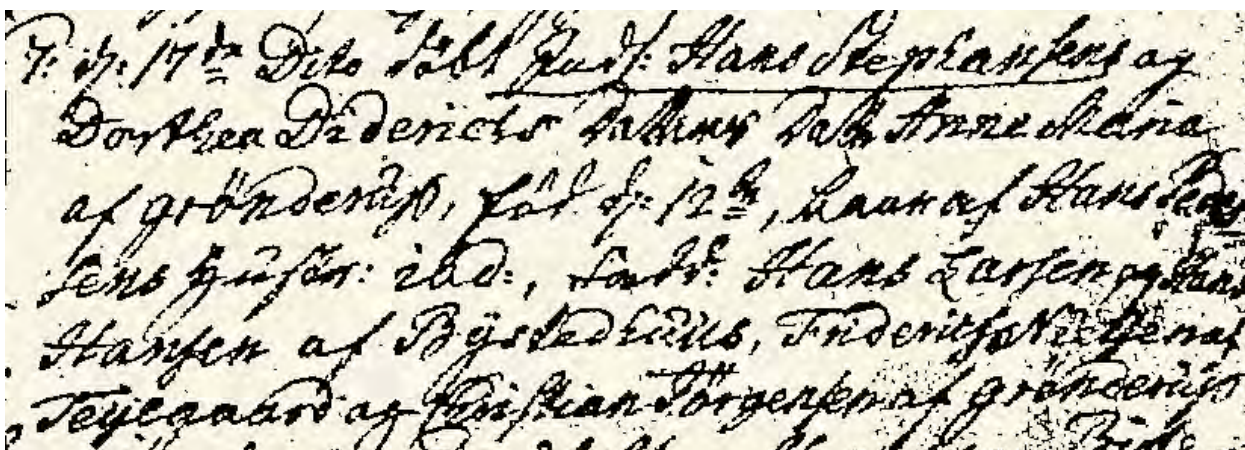 d: 17de Dito döbt Huusm: Hans Stephansens og
Dorthea Diderichs Datters Datt: Anne Maria
af grönderup, föd d: 12te, baaren af Hans Peder
sens Hustr: ibd:, fadd: Hans Larsen og Hans
Hansen af Bÿstedhuus, Friderich Nielsen af
Tejegaard og Christian Jörgensen af grönderup